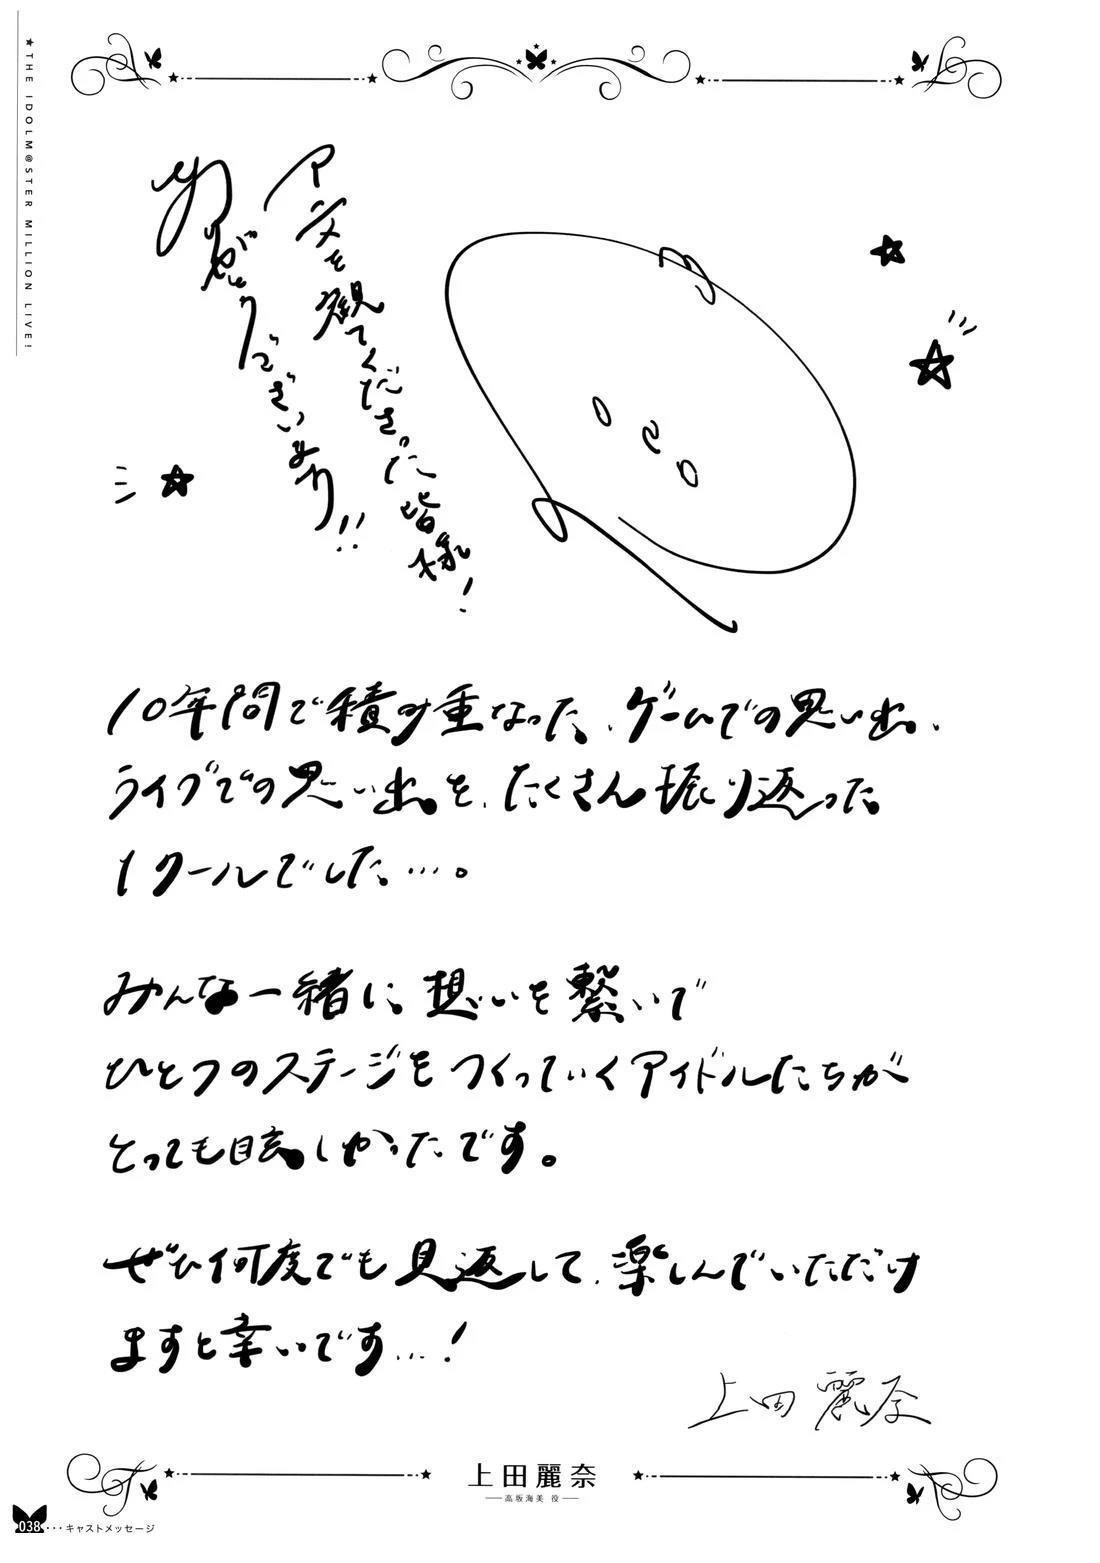 ★THE IDOLM@STER MILLION LIVE!
アニメを観てくださった皆様!
ありがとうございます!!
10年間で積み重なった、ゲームでの思い出、
ライブでの思い出を、たくさん振り返った
1クールでした…。
みんな一緒に想いを繋いで
ひとつのステージをつくっていくアイドルたちが
とっても眩しかったです。
ぜひ何度でも見返して、楽しんでいただけ
ますと幸いです…!
上田麗奈
上田麗奈
高坂海美 役
038・・・キャストメッセージ